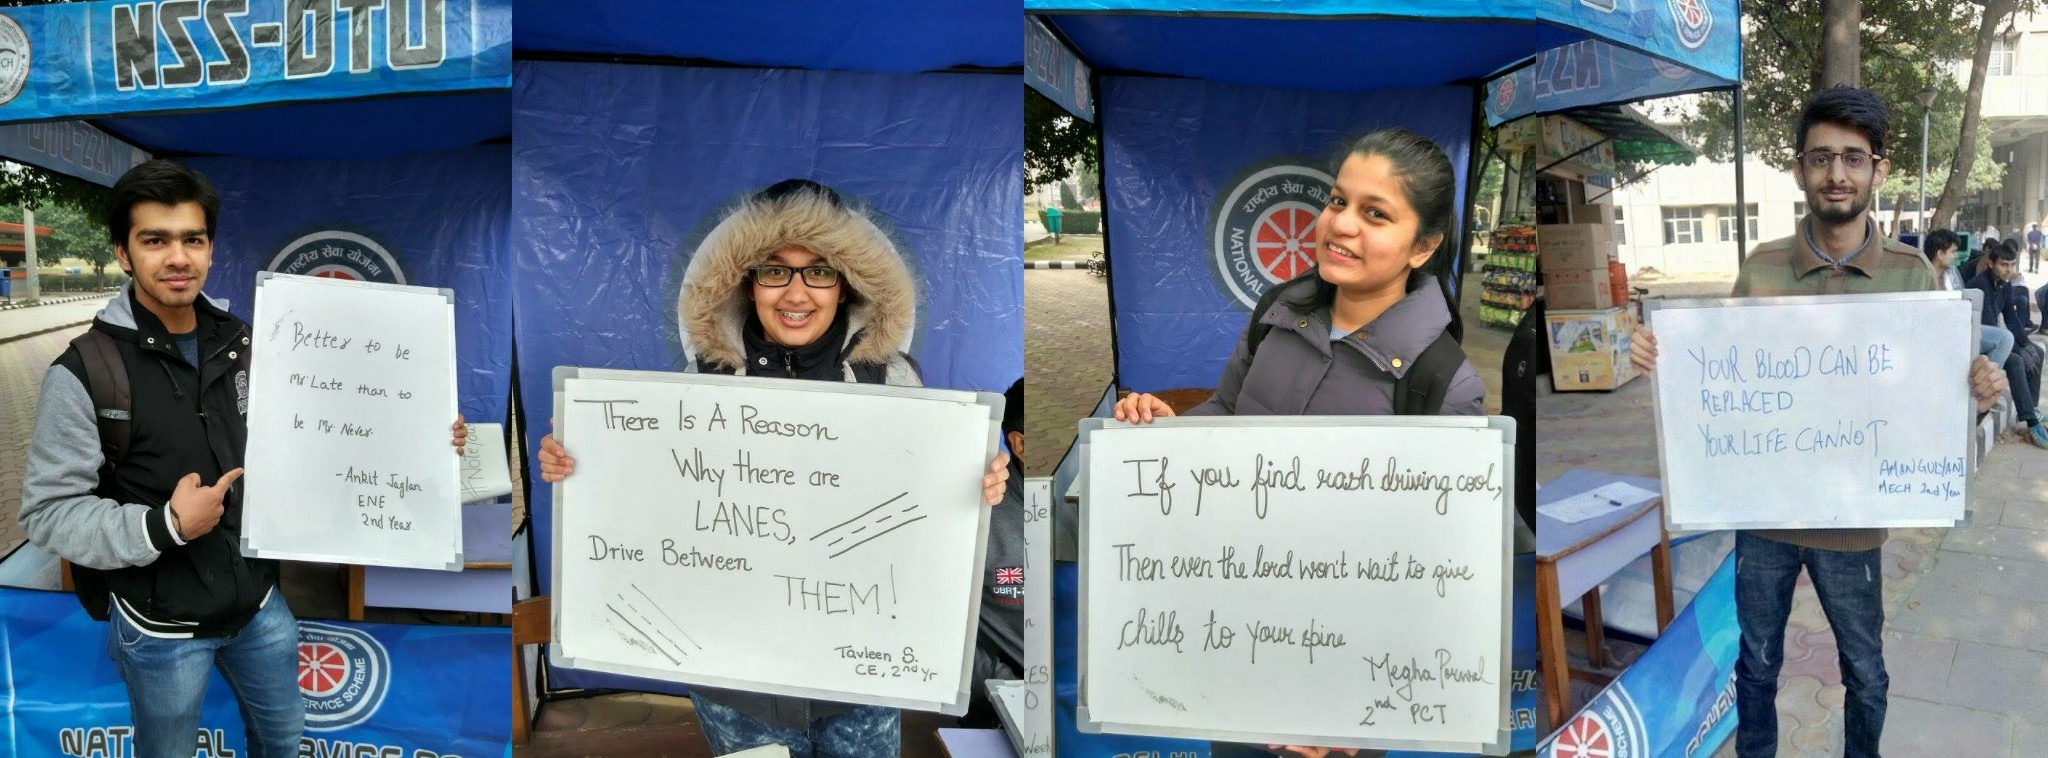 NSS-DTU
राष्ट्रीय सेवा योजना
Better to be
Mr. Late than to
be Mr. Never.
-Ankit Jaglan
ENE
2nd Year.
SERVICE SCHEME
There Is A Reason
Why there are
LANES,
Drive Between
THEM!
Tavleen S.
CE, 2nd Yr
राष्ट्रीय सेवा
NATIONAL
If you find rash driving cool,
Then even the lord won't wait to give
chills to your spine
Megha Porwal
2nd PCT
YOUR BLOOD CAN BE
REPLACED
YOUR LIFE CANNOT
AMAN GULYANI
MECH 2nd Year
SCHEME